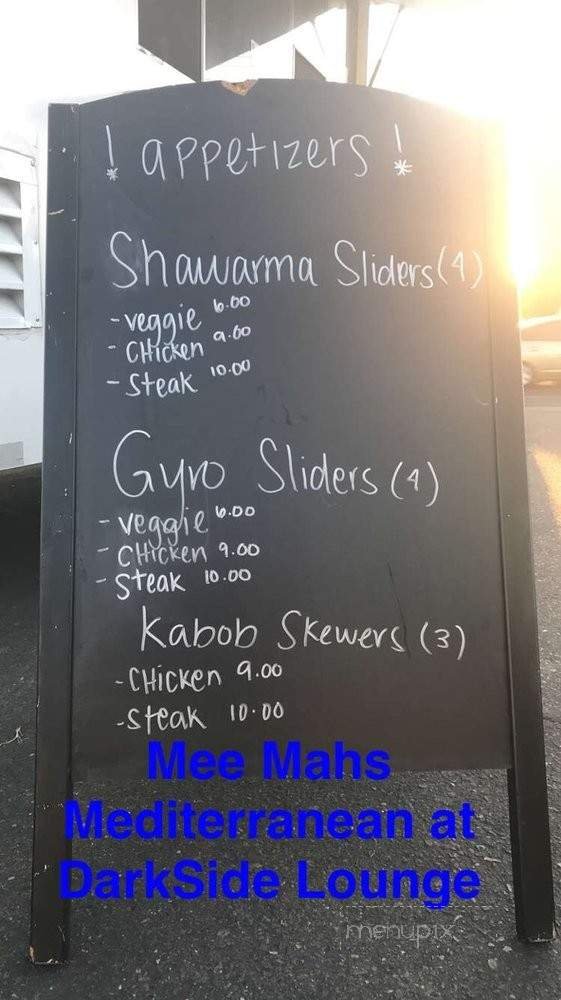 ! appetizers !
Shawarma Sliders (4)
- veggie 6.00
- CHicken 9.00
- Steak 10.00
Gyro Sliders (4)
- veggie 6.00
- CHicken 9.00
- Steak 10.00
Kabob Skewers (3)
- CHicken 9.00
- Steak 10.00
Mee Mahs
Mediterranean at
DarkSide Lounge
menupix